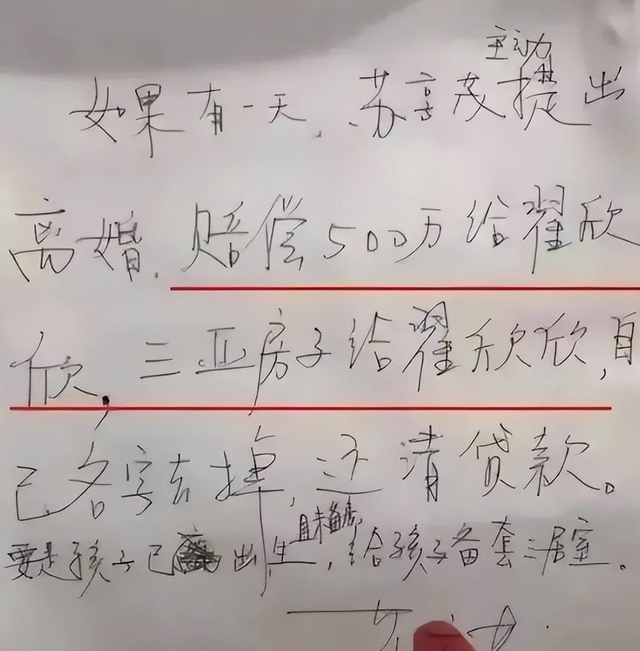 如果有一天,苏享茂主动提出
离婚,赔偿500万给翟欣
欣,三亚房子给翟欣欣,自
己名字去掉,还清贷款。
要是孩子已出生,给孩子备套三居室。